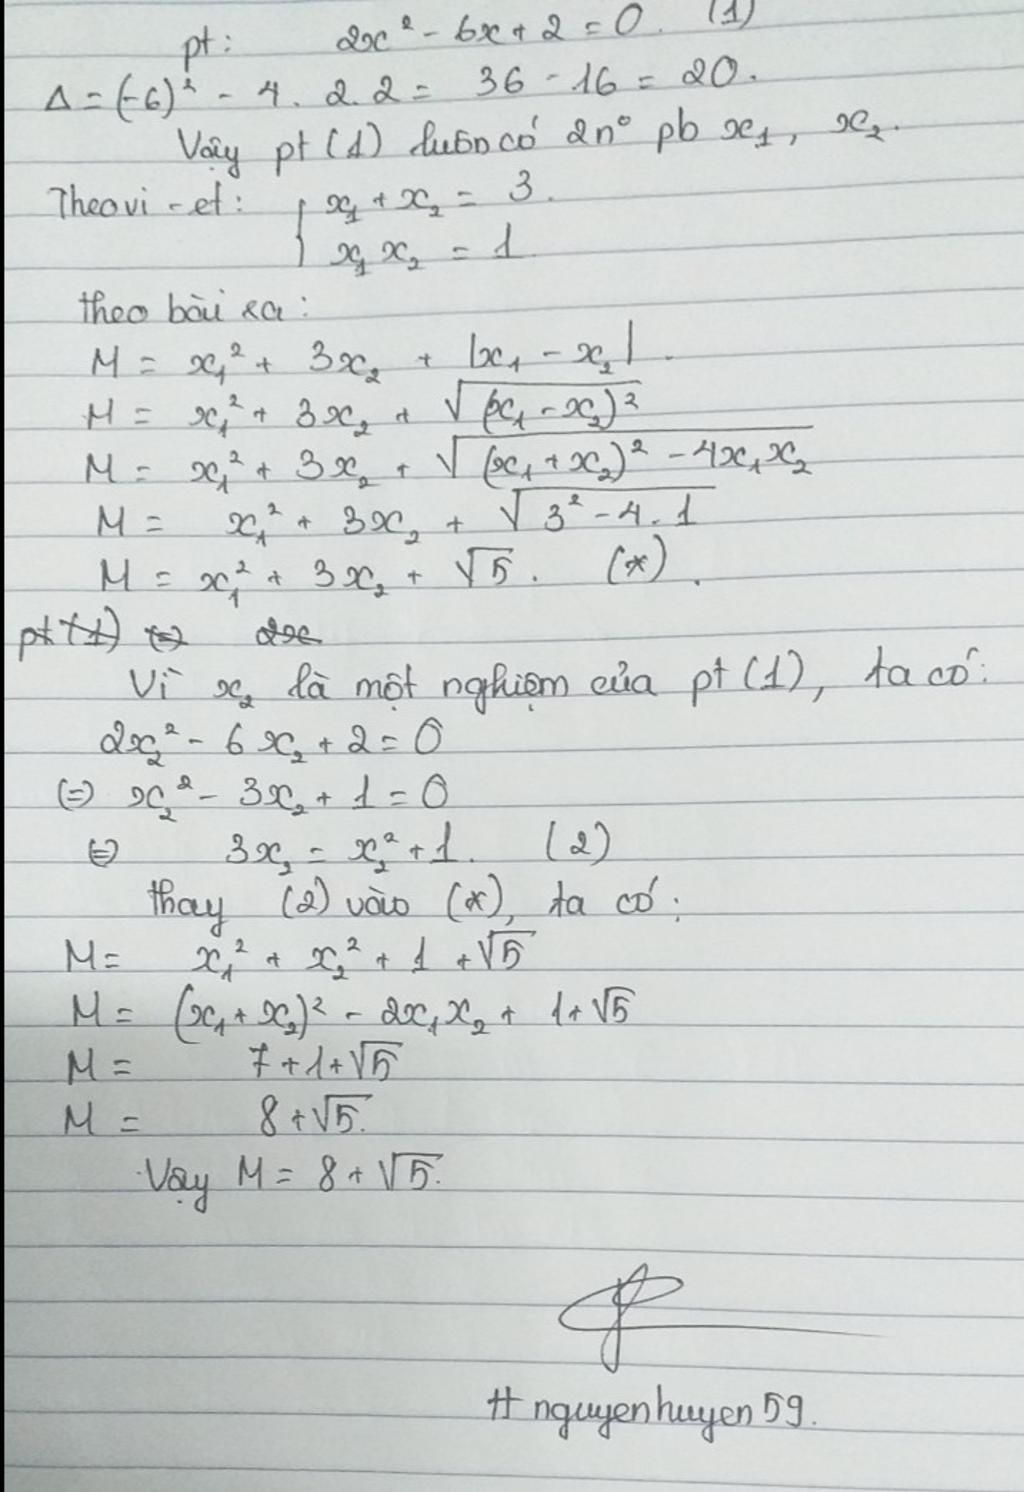 pt: 2x² - 6x + 2 = 0. (1)
Δ = (-6)² - 4. 2.2 = 36 - 16 = 20.
Vậy pt (1) luôn có 2 n° pb x₁, x₂.
Theo vi-et: { x₁ + x₂ = 3.
x₁ x₂ = 1
theo bài ra:
M = x₁² + 3x₂ + |x₁ - x₂|.
M = x₁² + 3x₂ + √(x₁ - x₂)²
M = x₁² + 3x₂ + √(x₁ + x₂)² - 4x₁x₂
M = x₁² + 3x₂ + √3² - 4.1
M = x₁² + 3x₂ + √5. (*).
pt (1) ⇔ 2x
Vì x₂ là một nghiệm của pt (1), ta có:
2x₂² - 6x₂ + 2 = 0
⇔ x₂² - 3x₂ + 1 = 0
⇔ 3x₂ = x₂² + 1. (2)
thay (2) vào (*), ta có:
M = x₁² + x₂² + 1 + √5
M = (x₁ + x₂)² - 2x₁x₂ + 1 + √5
M = 7 + 1 + √5
M = 8 + √5.
Vậy M = 8 + √5.
# nguyenhuyen59.